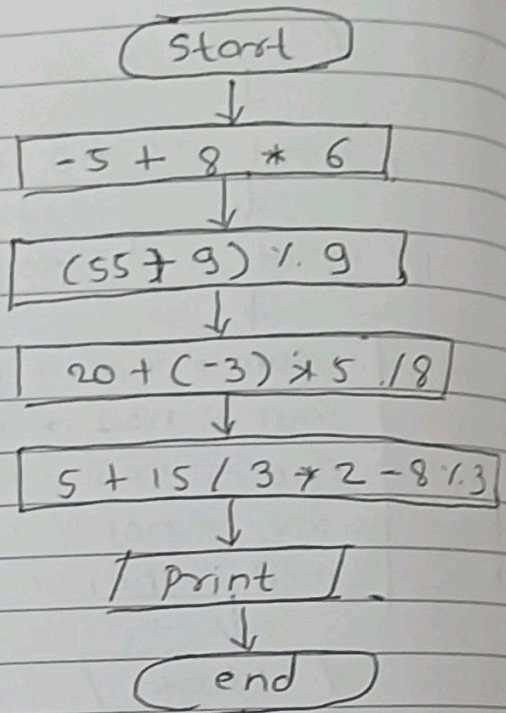 Start
-5 + 8 * 6
(55 + 9) % 9
20 + (-3) * 5 / 8
5 + 15 / 3 * 2 - 8 % 3
Print
end